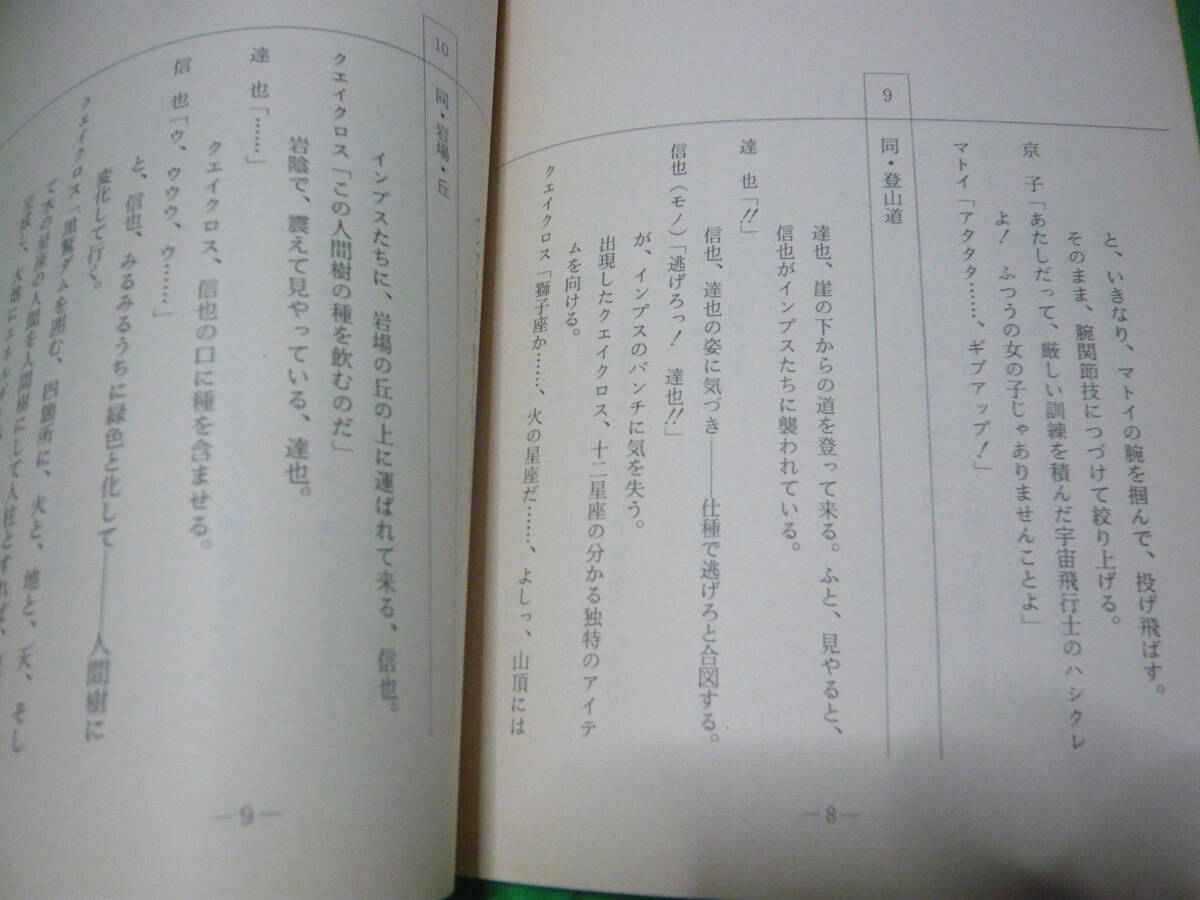 と、いきなり、マトイの腕を掴んで、投げ飛ばす。
そのまま、腕関節技につづけて絞り上げる。
京　子「あたしだって、厳しい訓練を積んだ宇宙飛行士のハシクレ
よ！　ふつうの女の子じゃありませんことよ」
マトイ「アタタタ……、ギブアップ！」
9　同・登山道
達也、崖の下からの道を登って来る。ふと、見やると、
信也がインプスたちに襲われている。
達　也「!!」
信也、達也の姿に気づき――仕種で逃げろと合図する。
信也（モノ）「逃げろっ！　達也!!」
が、インプスのパンチに気を失う。
出現したクエイクロス、十二星座の分かる独特のアイテ
ムを向ける。
クエイクロス「獅子座か……、火の星座だ……、よしっ、山頂には
―8―
10　同・岩場・丘
インプスたちに、岩場の丘の上に運ばれて来る、信也。
クエイクロス「この人間樹の種を飲むのだ」
岩陰で、震えて見やっている、達也。
達　也「……」
クエイクロス、信也の口に種を含ませる。
信　也「ウ、ウウウ、ウ……」
と、信也、みるみるうちに緑色と化して――人間樹に
変化して行く。
クエイクロス「黒鷲ダムを囲む、四箇所に、火と、地と、天、そし
て水の星座の人間を人間樹にして人柱とすれば、
完成し、大地に
―9―